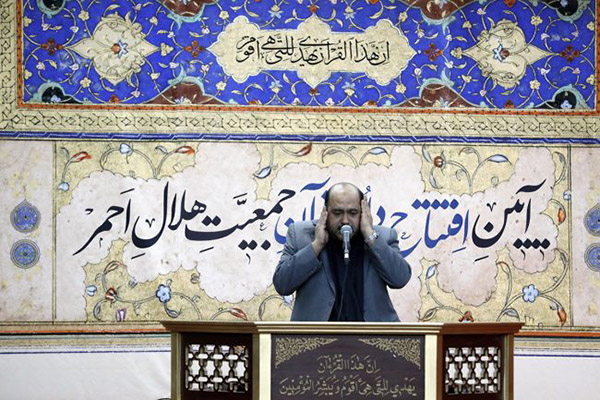 ان هذا القرآن یهدی للتی هی اقوم
آیین افتتاح جمعیت هلال احمر
اِنَّ هٰذَا الْقُرْآنَ
یَهْدِی لِلَّتِی هِیَ اَقْوَمُ وَ یُبَشِّرُ الْمُؤْمِنینَ